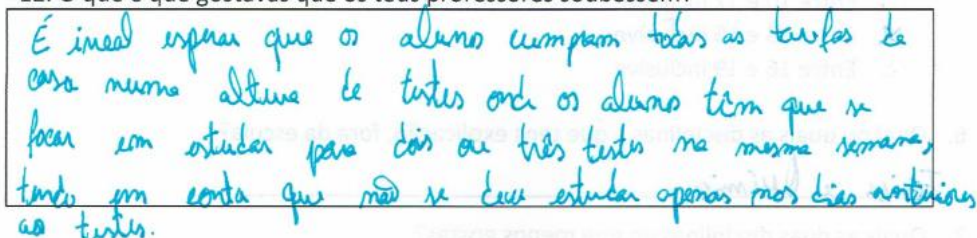 12. O que é que gostavas que os teus professores soubessem?
É irreal esperar que os alunos cumpram todas as tarefas de
casa numa altura de testes onde os alunos têm que se
focar em estudar para dois ou três testes na mesma semana,
tendo em conta que não se deve estudar apenas nos dias anteriores
ao testes.